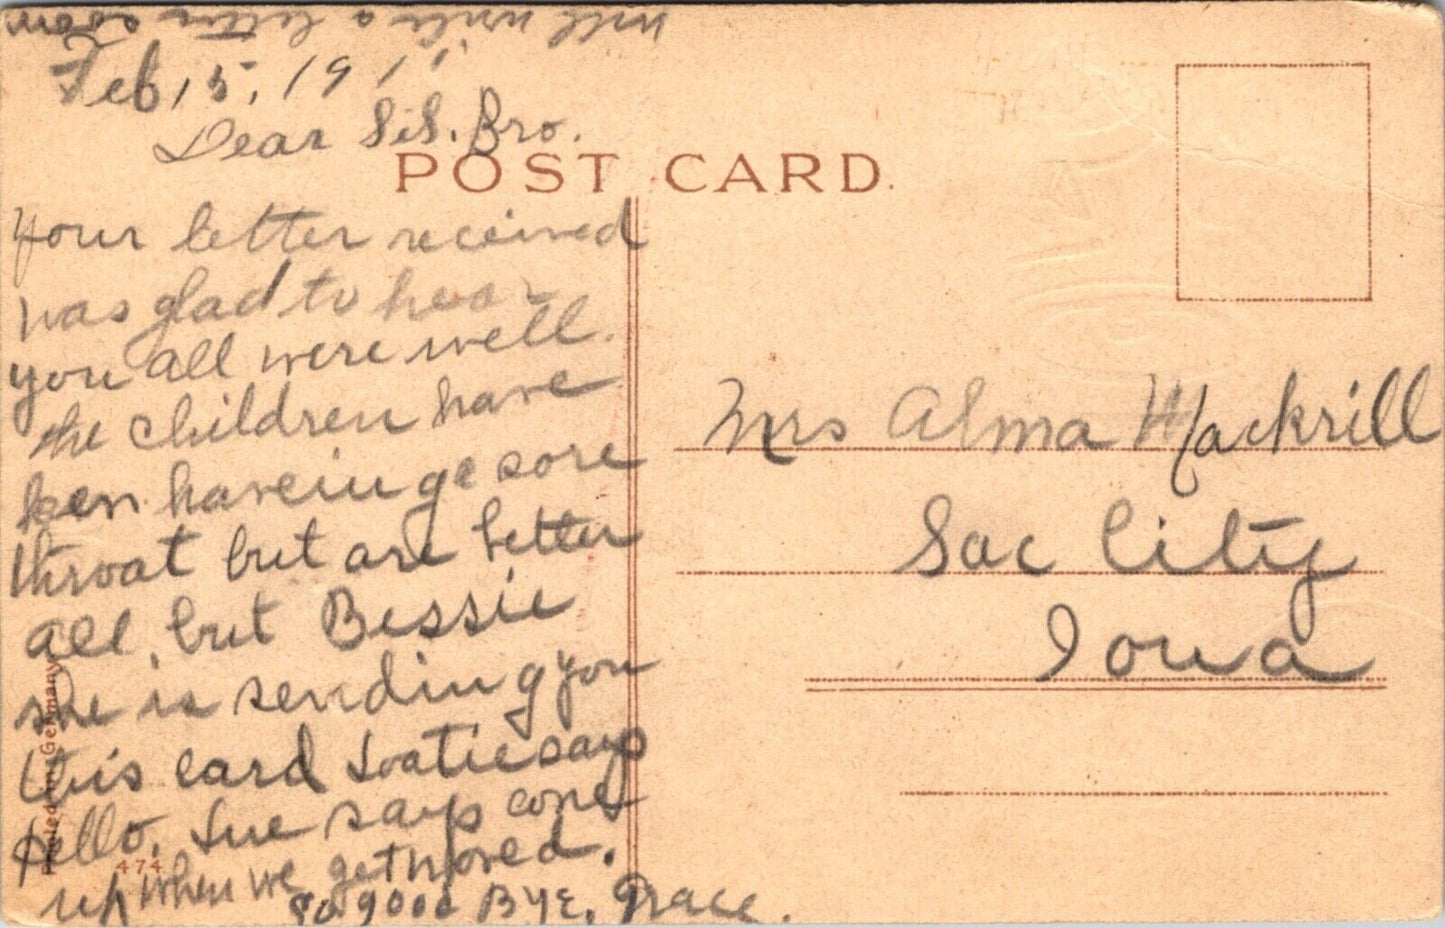 will write a letter soon
Feb 15, 1911
Dear Sis. Bro.
POST CARD.
Your letter received
was glad to hear
you all were well.
the children have
ben haveing sore
throat but are better
all but Bessie
she is sending you
this card says
hello. Sue says come
up when we get moved.
so good Bye. Grace.
Mrs Alma Mackrill
Sac City
Iowa
Printed in Germany
474